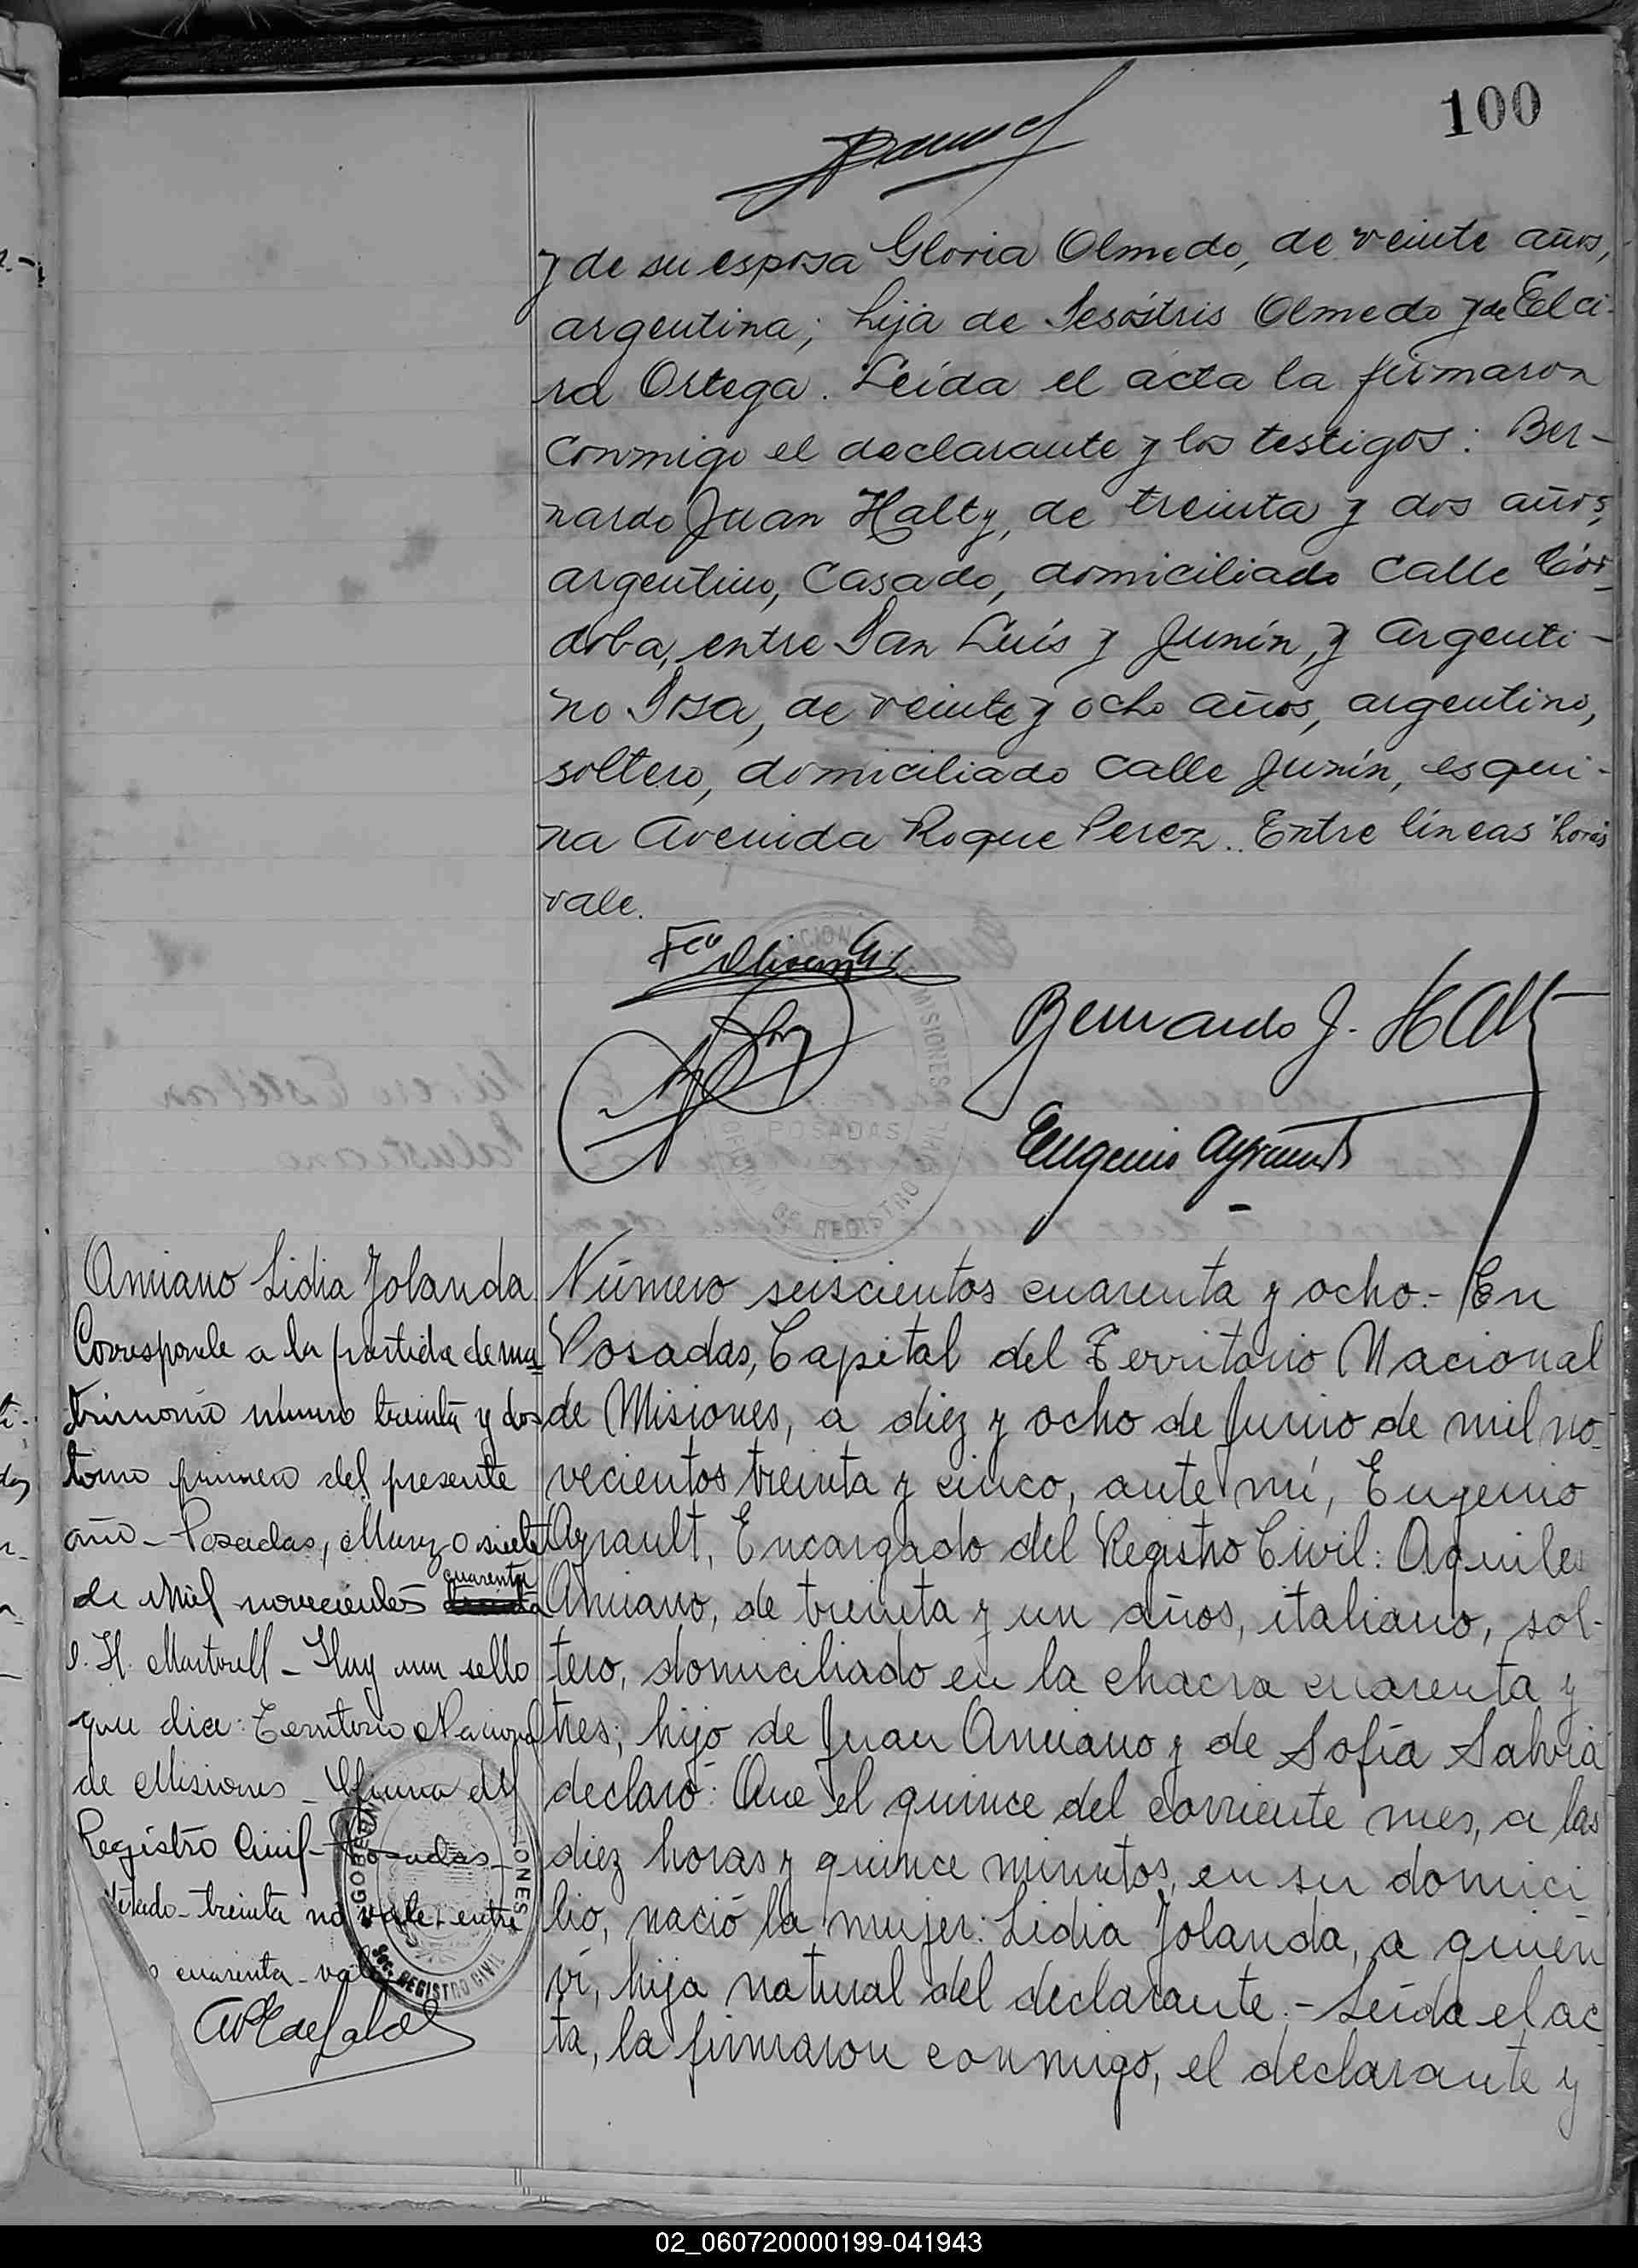 100
y de su esposa Gloria Olmedo, de veinte años,
argentina; hija de Sesóstris Olmedo y de Elci-
ra Ortega. Leída el acta la firmaron
conmigo el declarante y los testigos: Ber-
nardo Juan Halty, de treinta y dos años,
argentino, casado, domiciliado calle Cór-
doba, entre San Luis y Junín, y Argenti-
no Sosa, de veinte y ocho años, argentino,
soltero, domiciliado calle Junín, esqui-
na Avenida Roque Perez.. Entre líneas "horas"
vale.
Bernardo J. Halty
Eugenio Ayrault
MISIONES
POSADAS
OFICINA DE REGISTRO CIVIL
Amiano Lidia Jolanda
Corresponde a la partida de ma-
trimonio número treinta y dos
tomo primero del presente
año - Posadas, Marzo siete
de Mil novecientos cuarenta
I. H. Martorell - Hay un sello
que dice: Territorio Nacional
de Misiones - Oficina del
Registro Civil - Posadas -
Testado - treinta no vale, entre
cuarenta - vale
GOBERNACION MISIONES
SEC. REGISTRO CIVIL
Número seiscientos cuarenta y ocho.- En
Posadas, Capital del Territorio Nacional
de Misiones, a diez y ocho de Junio de mil no-
vecientos treinta y cinco, ante mí, Eugenio
Ayrault, Encargado del Registro Civil: Aquiles
Amiano, de treinta y un años, italiano, sol-
tero, domiciliado en la chacra cuarenta y
tres; hijo de Juan Amiano y de Sofía Salvia
declaró: Que el quince del corriente mes, a las
diez horas y quince minutos, en su domici
lio, nació la mujer: Lidia Jolanda, a quien
ví, hija natural del declarante.- Leída el ac
ta, la firmaron conmigo, el declarante y
02_060720000199-041943